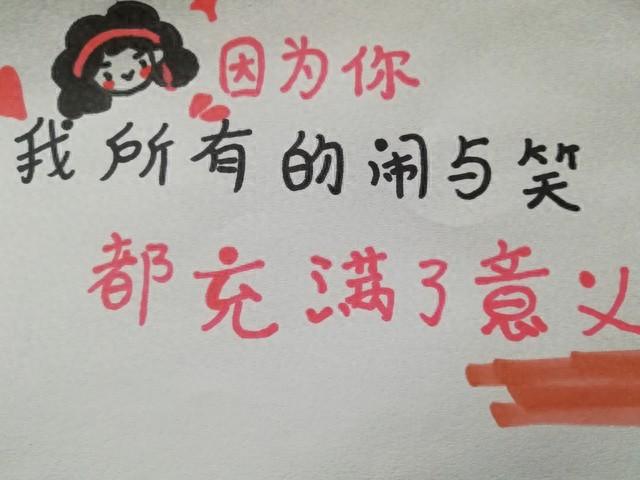 因为你
我所有的闹与笑
都充满了意义